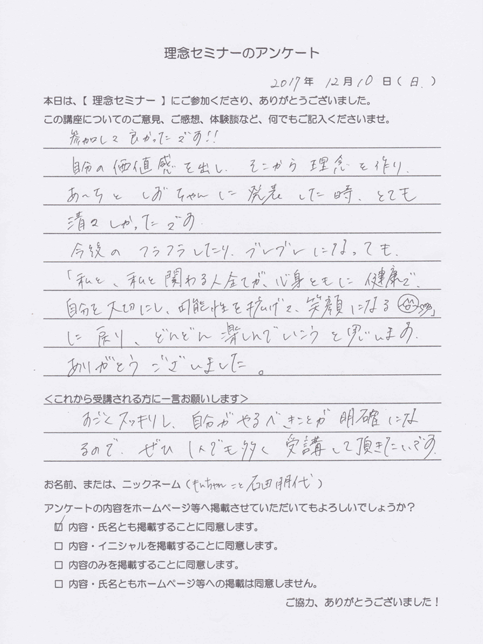 理念セミナーのアンケート
2017年 12月10日(日.)
本日は、【 理念セミナー 】にご参加くださり、ありがとうございました。
この講座についてのご意見、ご感想、体験談など、何でもご記入くださいませ。
参加して良かったです!!
自分の価値感を出し、そこから理念を作り、
あーちとしおちゃんに発表した時、とても
清々しかったです。
今後のフラフラしたり、ブレブレになっても、
「私と、私と関わる人全てが、心身ともに健康で、
自分を大切にし、可能性を拡げて、笑顔になる」
に戻り、どんどん楽しんでいこうと思います。
ありがとうございました。
<これから受講される方に一言お願いします>
すごくスッキリし、自分がやるべきことが明確にな
るので、ぜひ1人でも多く受講して頂きたいです。
お名前、または、ニックネーム(こと石田明代)
アンケートの内容をホームページ等へ掲載させていただいてもよろしいでしょうか?
☑ 内容・氏名とも掲載することに同意します。
□ 内容・イニシャルを掲載することに同意します。
□ 内容のみを掲載することに同意します。
□ 内容・氏名ともホームページ等への掲載は同意しません。
ご協力、ありがとうございました!